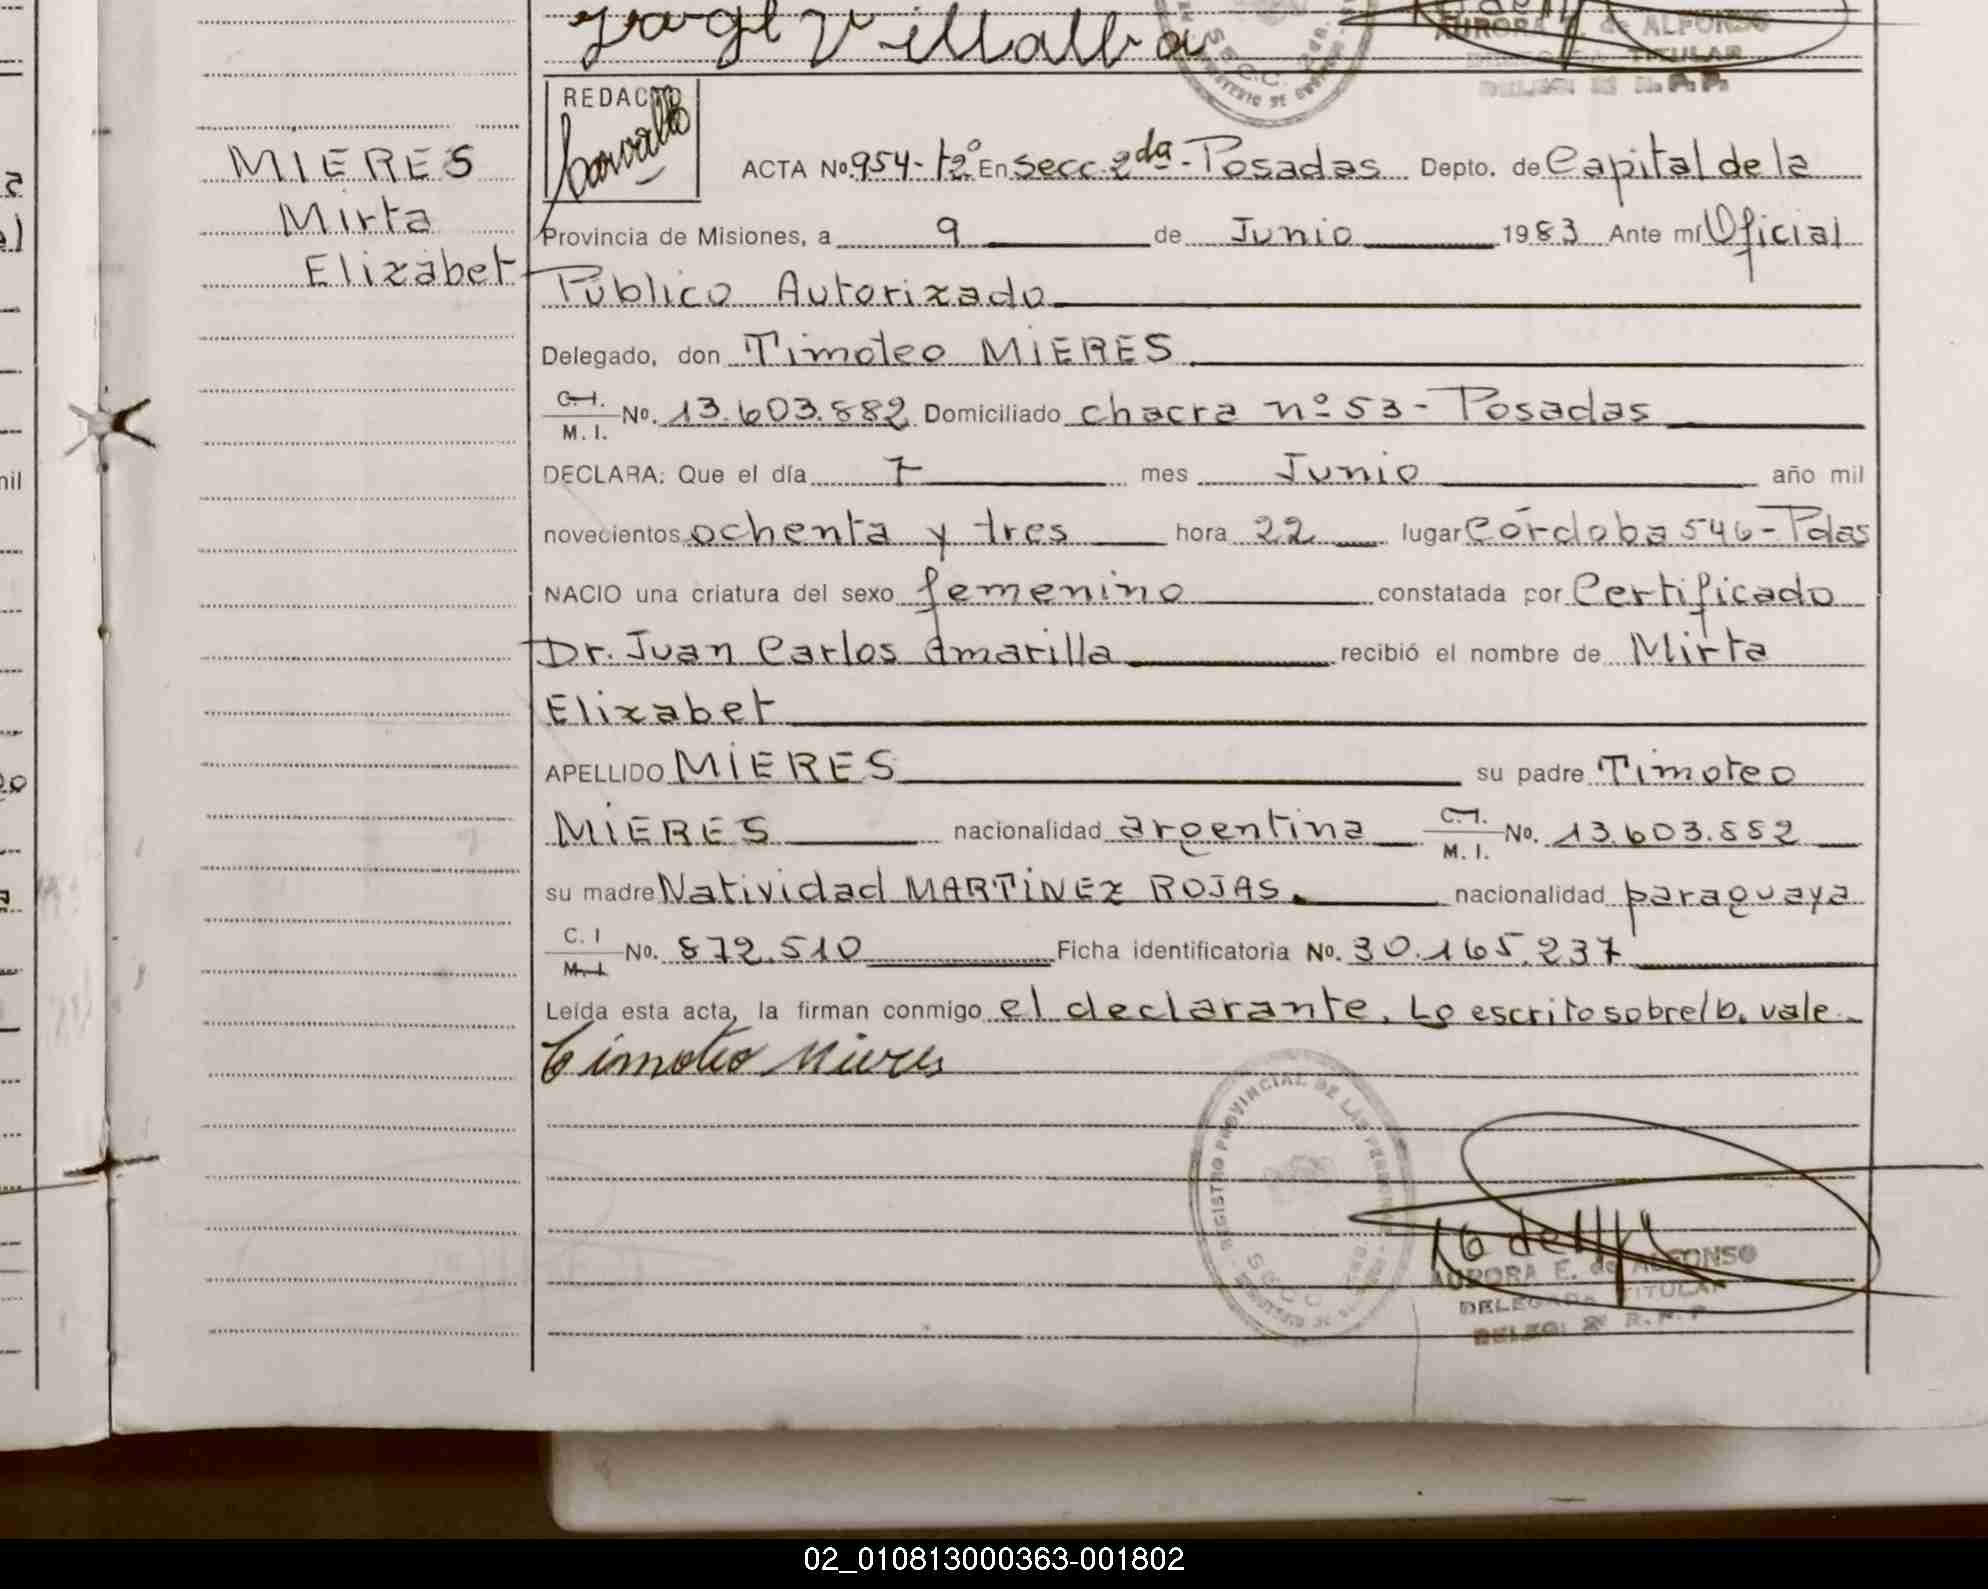 Villalba
AURORA E. de ALFONSO
TITULAR
REDACTO
MIERES
Mirta
Elizabet
ACTA No. 954-t2º En Secc. 2da - Posadas Depto. de Capital de la
Provincia de Misiones, a 9 de Junio 1983 Ante mí Oficial
Público Autorizado
Delegado, don Timoteo MIERES
C.I. M.I. No. 13.603.882 Domiciliado chacra nº 53 - Posadas
DECLARA: Que el día 7 mes Junio año mil
novecientos ochenta y tres hora 22 lugar Córdoba 546 - Pdas
NACIO una criatura del sexo femenino constatada por Certificado
Dr. Juan Carlos Amarilla recibió el nombre de Mirta
Elizabet
APELLIDO MIERES su padre Timoteo
MIERES nacionalidad argentina C.I. M.I. No. 13.603.882
su madre Natividad MARTINEZ ROJAS. nacionalidad paraguaya
C.I M.I No. 872.510 Ficha identificatoria No. 30.165.237
Leída esta acta, la firman conmigo el declarante. Lo escrito sobre/b. vale.
Timoteo Mieres
REGISTRO PROVINCIAL DE LAS PERSONAS
SECC. 2da.
AURORA E. de ALFONSO
DELEGADA TITULAR
DELEG. 2ª R.P.P
nil
02_010813000363-001802